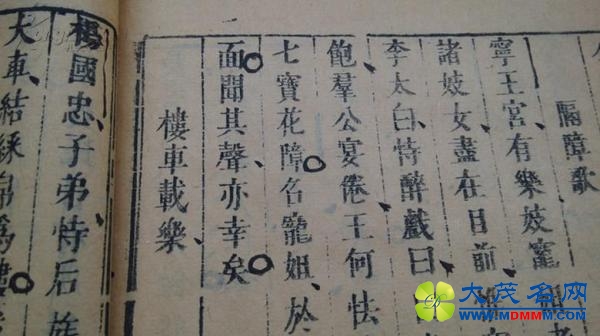 隔障歌
寧王宮有樂妓寵姐
諸妓女盡在目前
李太白恃醉戲曰
飽羣公宴倦王何怯
七寶花障名寵姐於
面聞其聲亦幸矣
樓車載樂
楊國忠子弟恃后族
大車結綵帛為樓
大茂名网
WWW.MDMMM.COM